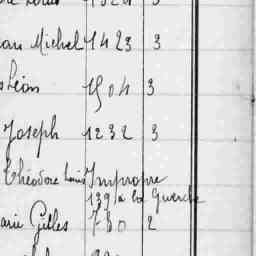 Michel 1423 3
Léon 1504 3
Joseph 1232 3
Théodore Louis Impropre
1391 à la Guerche
Gilles 780 2